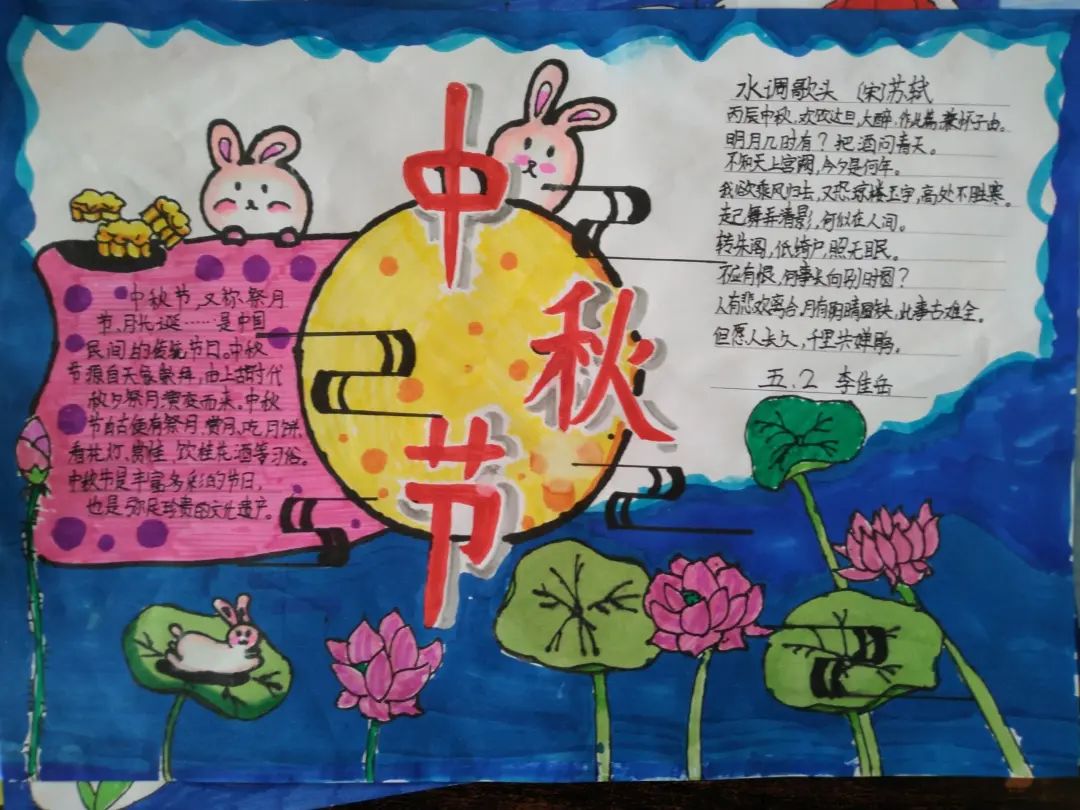 中秋节
中秋节，又称祭月
节、月光诞……是中国
民间的传统节日。中秋
节源自天象崇拜，由上古时代
秋夕祭月演变而来。中秋
节自古便有祭月、赏月、吃月饼、
看花灯、赏桂、饮桂花酒等习俗。
中秋节是丰富多彩的节日，
也是弥足珍贵的文化遗产。
水调歌头 (宋)苏轼
丙辰中秋，欢饮达旦，大醉，作此篇，兼怀子由。
明月几时有？把酒问青天。
不知天上宫阙，今夕是何年。
我欲乘风归去，又恐琼楼玉宇，高处不胜寒。
起舞弄清影，何似在人间。
转朱阁，低绮户，照无眠。
不应有恨，何事长向别时圆？
人有悲欢离合，月有阴晴圆缺，此事古难全。
但愿人长久，千里共婵鹃。
五.2 李佳岳